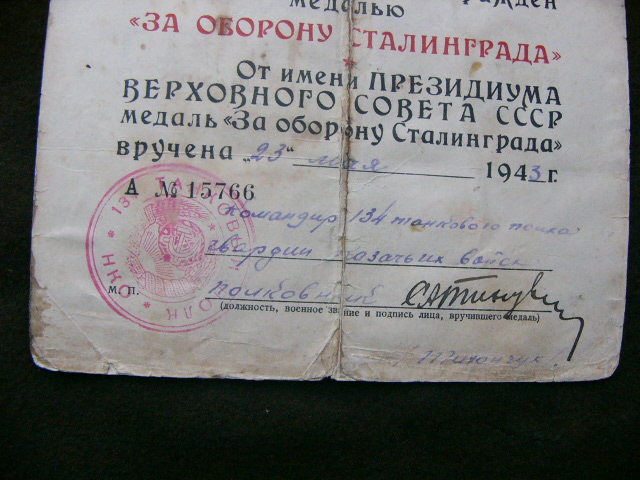 медалью
«ЗА ОБОРОНУ СТАЛИНГРАДА»
От имени ПРЕЗИДИУМА
ВЕРХОВНОГО СОВЕТА СССР
медаль «За оборону Сталинграда»
вручена „23“ мая 1943 г.
А № 15766
Командир 134 танкового полка
гвардии казачьих войск
м. п.
полковник
(должность, военное звание и подпись лица, вручившего медаль)